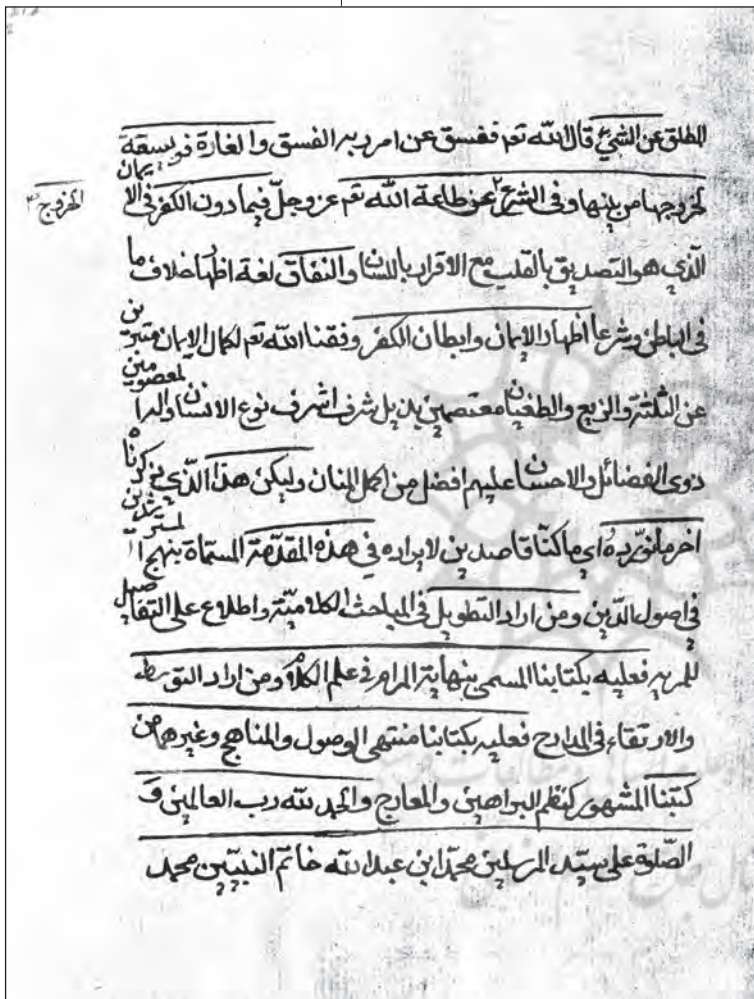 المطلق عن الشيء قال الله تعم ففسق عن امر ربه الفسق والغارة فويسقة
لخروجها من بيتها وفى الشرع عن طاعة الله تعم عز وجل فيما دون الكفر فى الا يمان
الخروج
الّذي هو التصديق بالقلب مع الاقرار باللسان والنفاق لغة اظهار خلاف ما
فى الباطن وشرعا اظهار الايمان وابطان الكفر وفقنا الله تعم لكمال الايمان متبرئين
عن الثلثة والزيغ والطغيان معتصمين بذيل شرف اشرف نوع الانسان واله ا لمعصومين
ذوى الفضائل والاحسان عليهم افضل من اكمل المنان وليكن هذا الّذي ذكرناه
اخر ما نورده اي ما كنّا قاصدين لايراده في هذه المقدّمة المسمّاة بنهج ا لمسترشدين
في اصول الدّين ومن اراد التطويل فى المباحث الكلاميّة واطلاع على التفاصيل
للمريد فعليه بكتابنا المسمى بنهاية المرام فى علم الكلام ومن اراد التوسط
والارتقاء فى المدارج فعليه بكتابنا منتهى الوصول والمناهج وغيرهما من
كتبنا المشهور كنظم البراهين والمعارج والحمد لله رب العالمين و
الصّلوة على سيّد المرسلين محمد ابن عبد الله خاتم النبيّين محمد